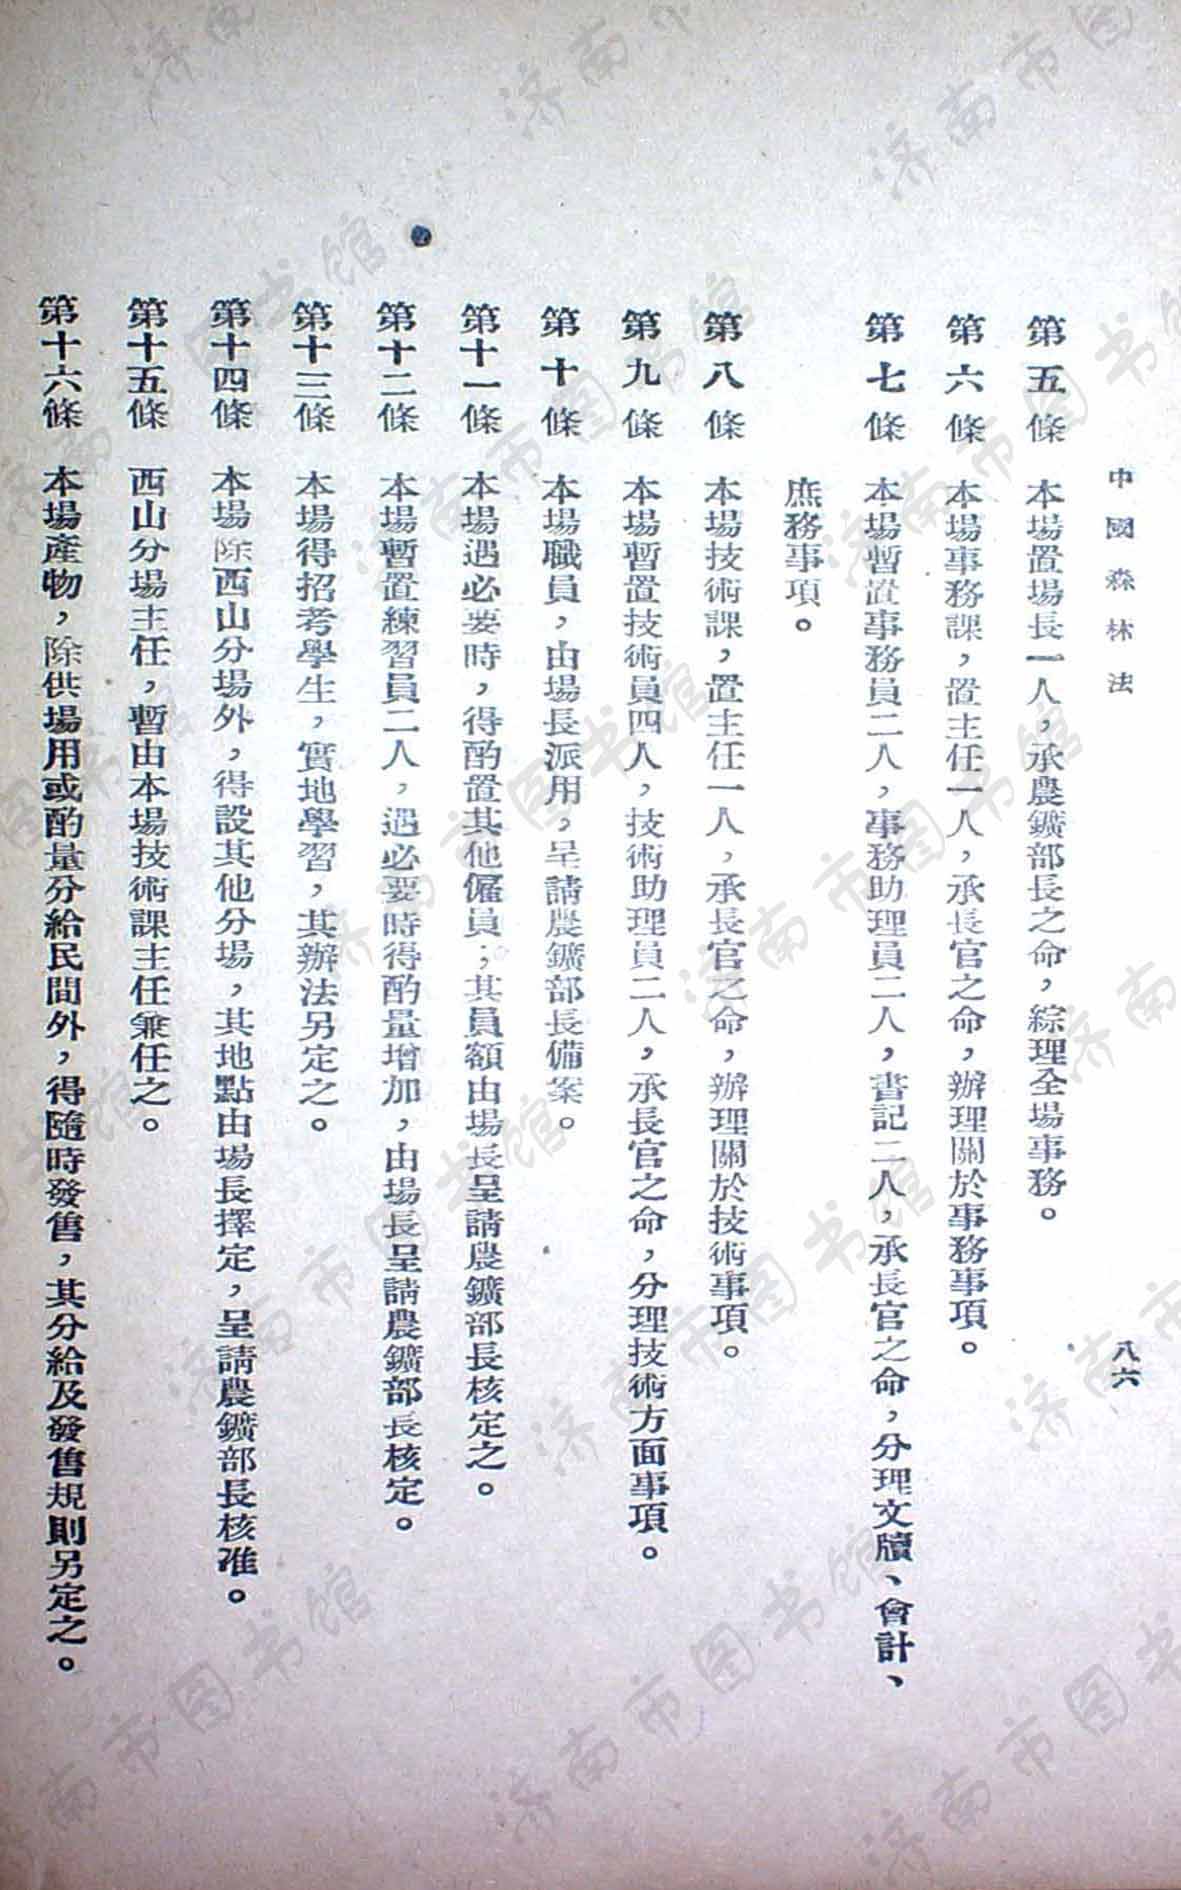 中國森林法
八六
第五條 本場置場長一人，承農鑛部長之命，綜理全場事務。
第六條 本場事務課，置主任一人，承長官之命，辦理關於事務事項。
第七條 本場暫置事務員二人，事務助理員二人，書記二人，承長官之命，分理文牘、會計、
庶務事項。
第八條 本場技術課，置主任一人，承長官之命，辦理關於技術事項。
第九條 本場暫置技術員四人，技術助理員二人，承長官之命，分理技術方面事項。
第十條 本場職員，由場長派用，呈請農鑛部長備案。
第十一條 本場遇必要時，得酌置其他僱員，其員額由場長呈請農鑛部長核定之。
第十二條 本場暫置練習員二人，遇必要時得酌量增加，由場長呈請農鑛部長核定。
第十三條 本場得招考學生，實地學習，其辦法另定之。
第十四條 本場除西山分場外，得設其他分場，其地點由場長擇定，呈請農鑛部長核准。
第十五條 西山分場主任，暫由本場技術課主任兼任之。
第十六條 本場產物，除供場用或酌量分給民間外，得隨時發售，其分給及發售規則另定之。
济南市图书馆